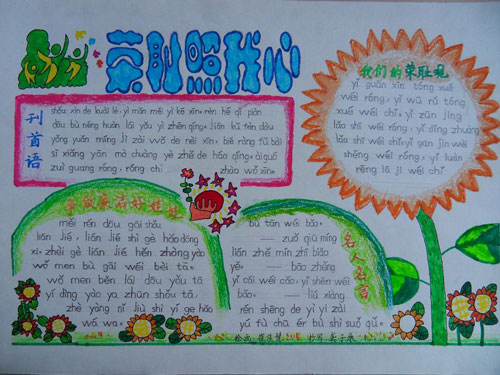 荣耻照我心
刊首语
shǒu xìn de kuài lè, yì mǎn měi yì kē xīn. rèn hé qī piàn
dōu bù néng huàn lái yǒu yì zhēn qíng. jiān kǔ fèn dòu
yǒng yuǎn míng jì zài wǒ de nèi xīn, bié ràng fǔ bài
sī xiǎng yān mò chuàng yè zhě de háo qíng. ài guó
zuì guāng róng, róng chǐ zhào wǒ xīn.
我们的荣耻观
yǐ guān xīn tóng xué
wéi róng, yǐ wǔ rǔ tóng
xué wéi chǐ, yǐ zūn jìng
lǎo shī wéi róng, yǐ dǐng zhuàng
lǎo shī wéi chǐ, yǐ gān jìng wèi
shēng wéi róng, yǐ luàn
rēng lā jī wéi chǐ
争做廉洁好娃娃
měi rén dōu gāi shǒu
lián jié, lián jié shì gè hǎo dōng
xi, zhèi gè lián jié hěn zhòng yào
wǒ men bù gāi wéi bèi tā.
wǒ men běn lái dōu yǒu tā
yí dìng yào yǎ zhǔn shǒu tā
zhè yàng nǐ jiù shì yí ge hǎo
wá wa.
名人名言
bù tān wéi bǎo.
—— zuǒ qiū míng
lián zhě mín zhī biǎo
yě. —— bāo zhěng
yǐ cái wéi cǎo, yǐ shēn wéi
bǎo. —— liú xiàng
rén shēng de yì yì zài
yú fù chū ér bú shì suǒ qǔ.